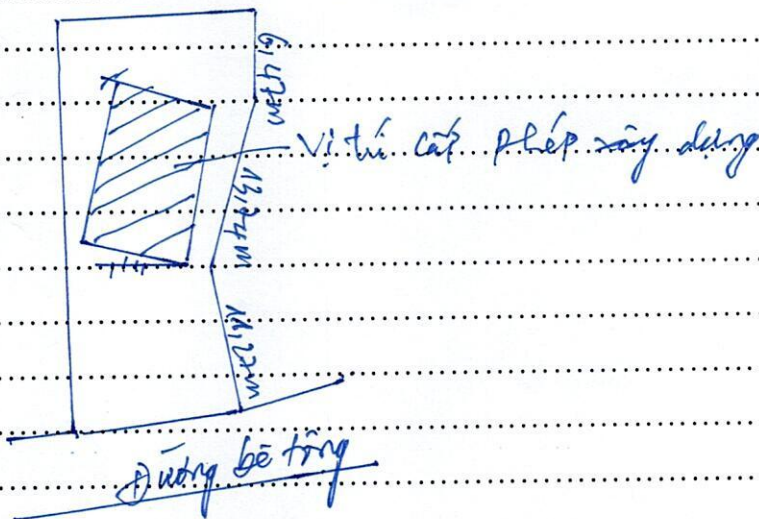 6,47m
Vị trí cấp phép xây dựng
13,74m
11,27m
Đường bê tông